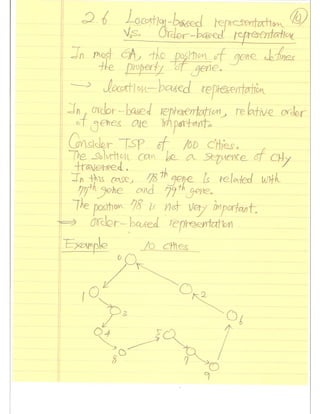 14
2.6 Location-based representation
Vs. Order-based representation
In most GA, the position of gene defines
the property of gene.
→ location-based representation
In order-based representation, relative order
of genes are important.
Consider TSP of 100 cities.
The solution can be a sequence of city
traversed.
In this case, 78th gene is related with
77th gene and 79th gene.
The position 78 is not very important.
→ order-based representation
Example 10 cities
0
1
2
3
4
5
6
8
7
9